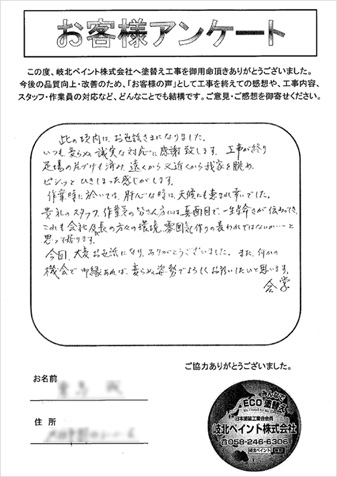 お客様アンケート
この度、岐北ペイント株式会社へ塗替え工事を御用命頂きありがとうございました。
今後の品質向上・改善のため、「お客様の声」として工事を終えての感想や、工事内容、
スタッフ・作業員の対応など、どんなことでも結構です。ご意見・ご感想を御寄せください。
此の度は、お世話になりました。
いつも変らぬ誠実な対応に感謝致します。工事が終り
足場の片づけも済み、遠くから又近くから我家を眺め、
ビシッとひきしまった感じがします。
作業時に於いては、肝心な時は、天候にも恵まれ幸いでした。
貴社のスタッフ、作業の皆さん方には真面目で、一生命さが伝わってき、
これも会社及長の方々の環境、雰囲気作りの表われではないか……と
思って居ります。
今回、大変お世話になり、ありがとうございました。また、何かの
機会で御縁あれば、変らぬ姿勢でよろしくお付合いたいと思います。
合掌
ご協力ありがとうございました。
お名前
住所
みんなで
ECO塗替え
日本塗装工業会会員
岐北ペイント株式会社
058-246-6306
岐北ペイント 検索